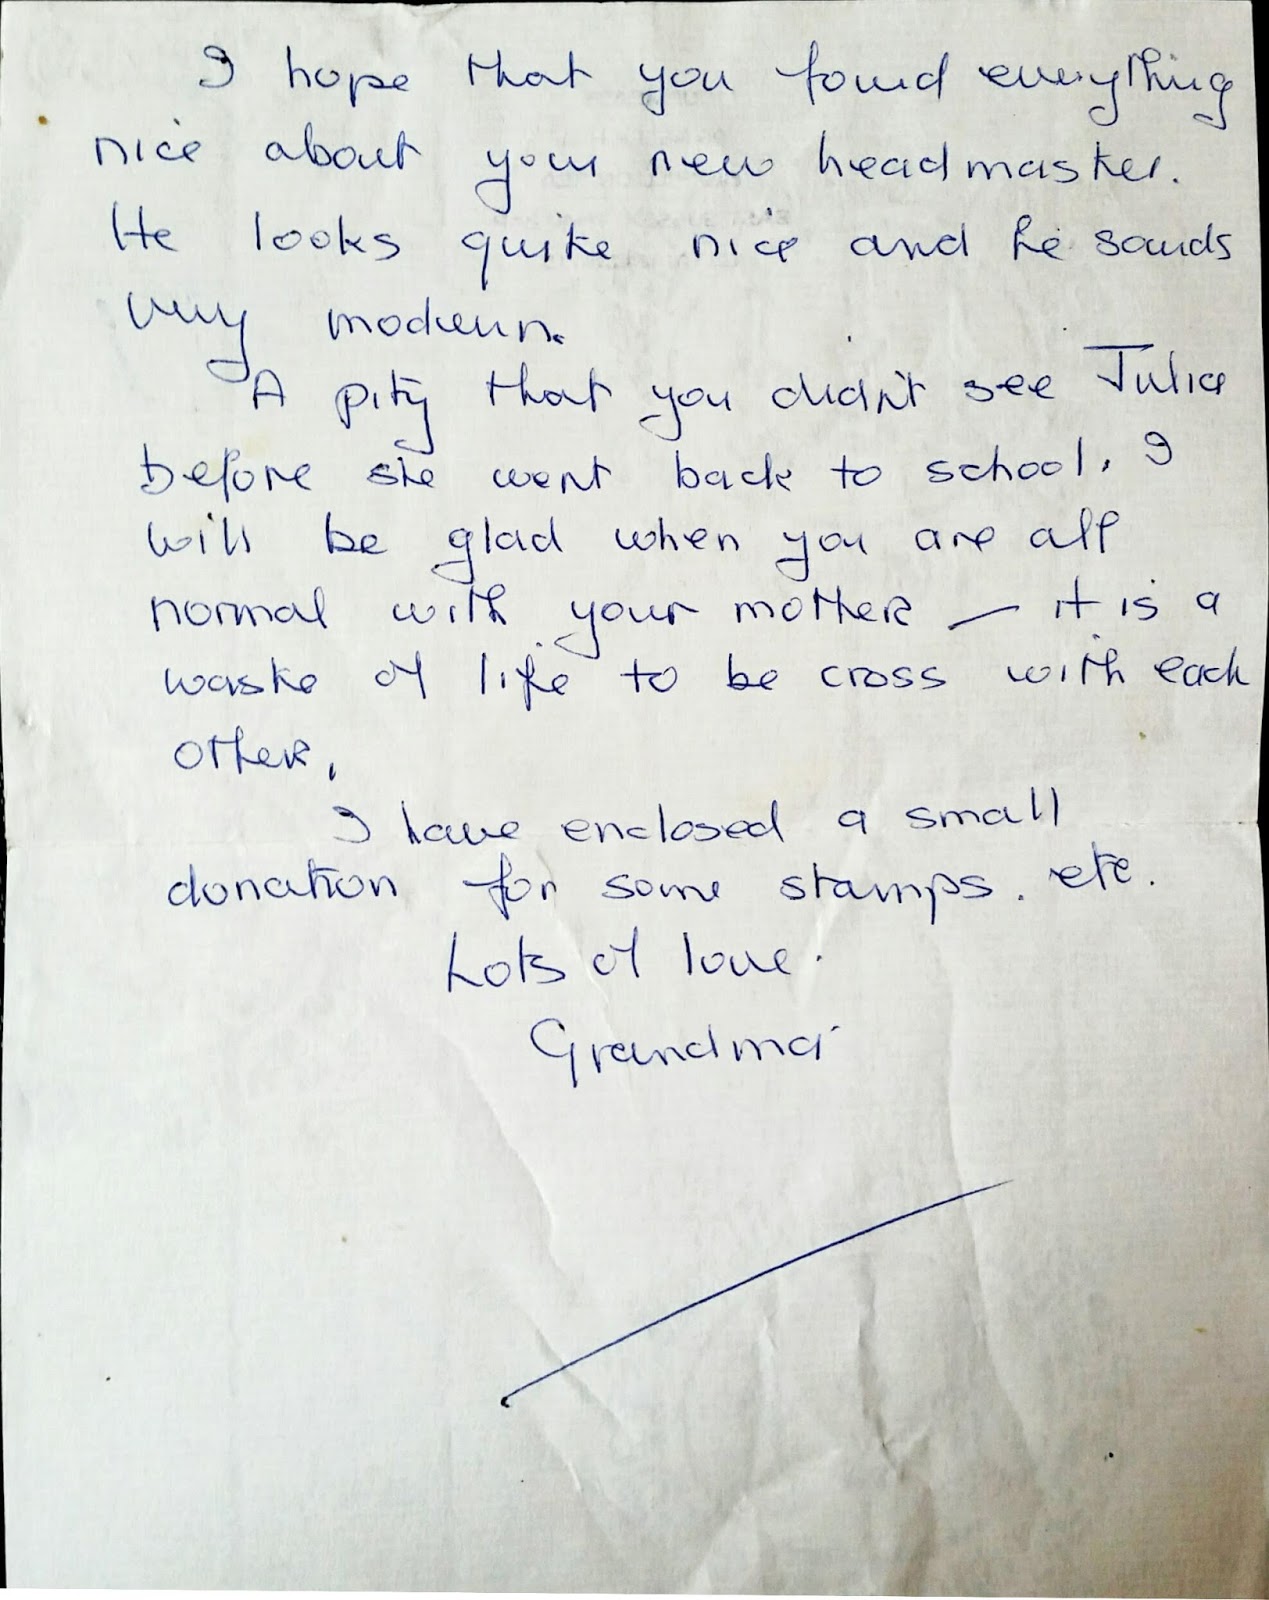 I hope that you found everything
nice about your new headmaster.
He looks quite nice and he sounds
very modern.
A pity that you didn't see Julia
before she went back to school. I
will be glad when you are all
normal with your mother – it is a
waste of life to be cross with each
other.
I have enclosed a small
donation for some stamps. etc.
Lots of love.
Grandma